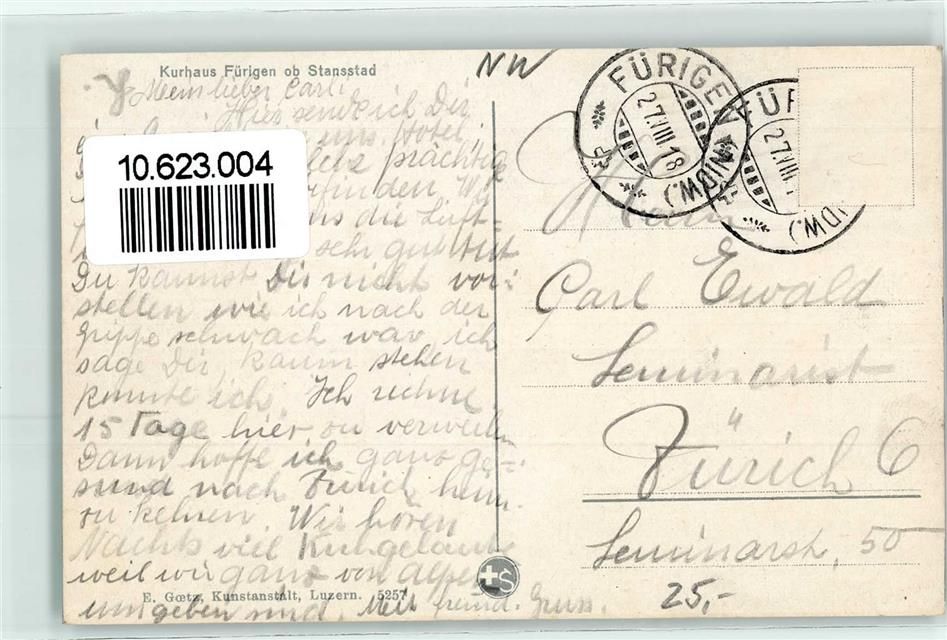 Kurhaus Fürigen ob Stansstad
NW
Mein lieber Carl!
Hier sende ich Dir
uns. Hotel,
prächtig
10.623.004
die Luft-
sehr gut tut
Du kannst Dir nicht vor-
stellen wie ich nach der
Grippe schwach war, ich
sage Dir, kaum stehen
konnte ich. Ich rechne
15 Tage hier zu verweilen
Dann hoffe ich ganz ge-
sund nach Zürich heim
zu kehren. Wir hören
Nachts viel Kuhgeläute
weil wir ganz von Alpen
umgeben sind. Mit freundl. Gruss.
E. Gœtz, Kunstanstalt, Luzern. 5257
S
FÜRIGEN (NIDW.)
27.VIII.18
FÜR
27.VII
(NIDW.)
Herrn
Carl Ewald
Seminarist
Zürich 6
Seminarstr. 50
25,-